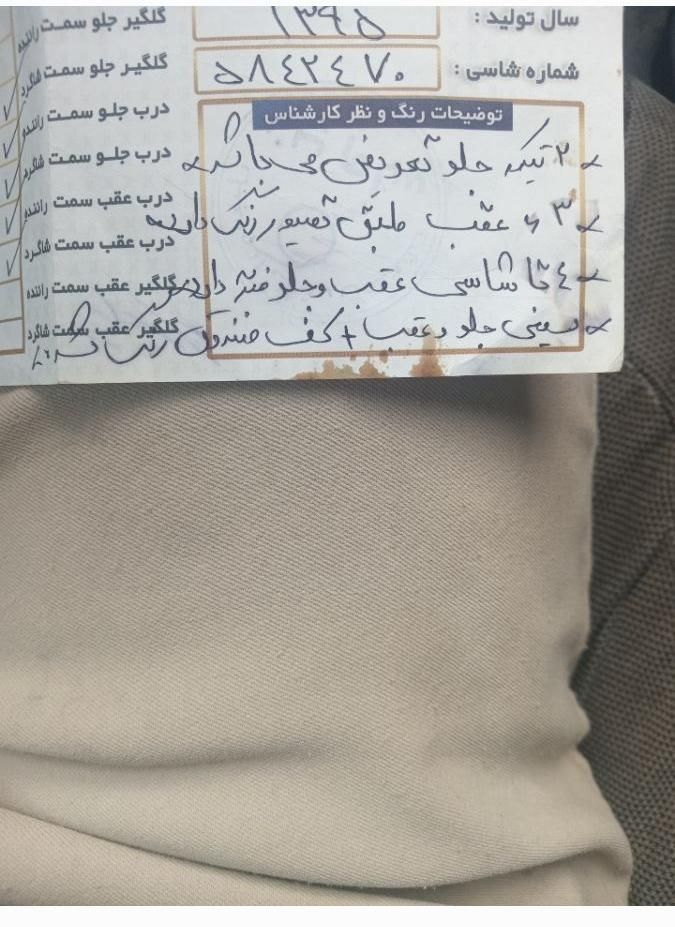 سال تولید : ۱۳۹۵
شماره شاسی : ۵۸۴۲۴۷۰
توضیحات رنگ و نظر کارشناس
۲ تیکه جلو تعویض می باشد
۳ و عقب طبق تصویر رنگ دارد
۴ تا شاسی عقب و جلو ضربه دارد
سینی جلو و عقب + کف صندوق رنگ باشد
گلگیر جلو سمت راننده
گلگیر جلو سمت شاگرد
درب جلو سمت راننده
درب جلو سمت شاگرد
درب عقب سمت راننده
درب عقب سمت شاگرد
گلگیر عقب سمت راننده
گلگیر عقب سمت شاگرد